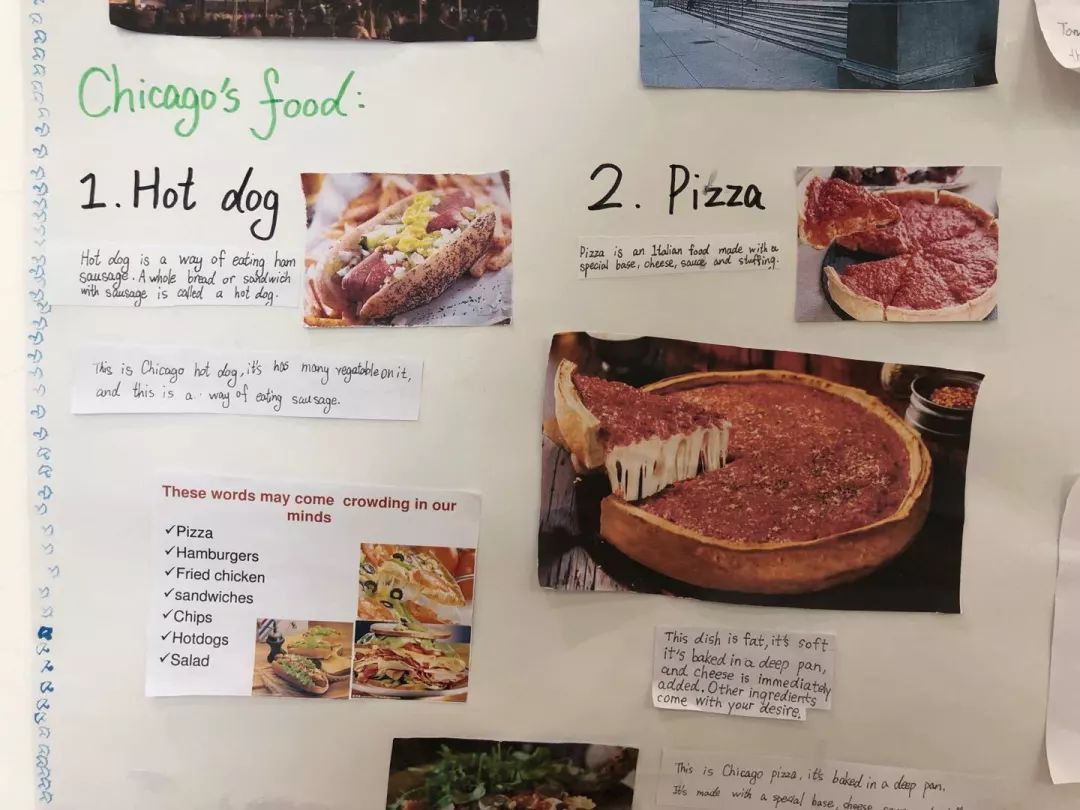 Chicago's food:
1. Hot dog
Hot dog is a way of eating ham
sausage. A whole bread or sandwich
with sausage is called a hot dog.
This is Chicago hot dog, it's has many vegatable on it,
and this is a way of eating sausage.
These words may come crowding in our
minds
✓Pizza
✓Hamburgers
✓Fried chicken
✓sandwiches
✓Chips
✓Hotdogs
✓Salad
2. Pizza
Pizza is an Italian food made with a
special base, cheese, sauce and stuffing.
This dish is fat, it's soft
it's baked in a deep pan,
and cheese is immediately
added. Other ingredients
come with your desire.
This is Chicago pizza, it's baked in a deep pan.
It's made with a special base, cheese